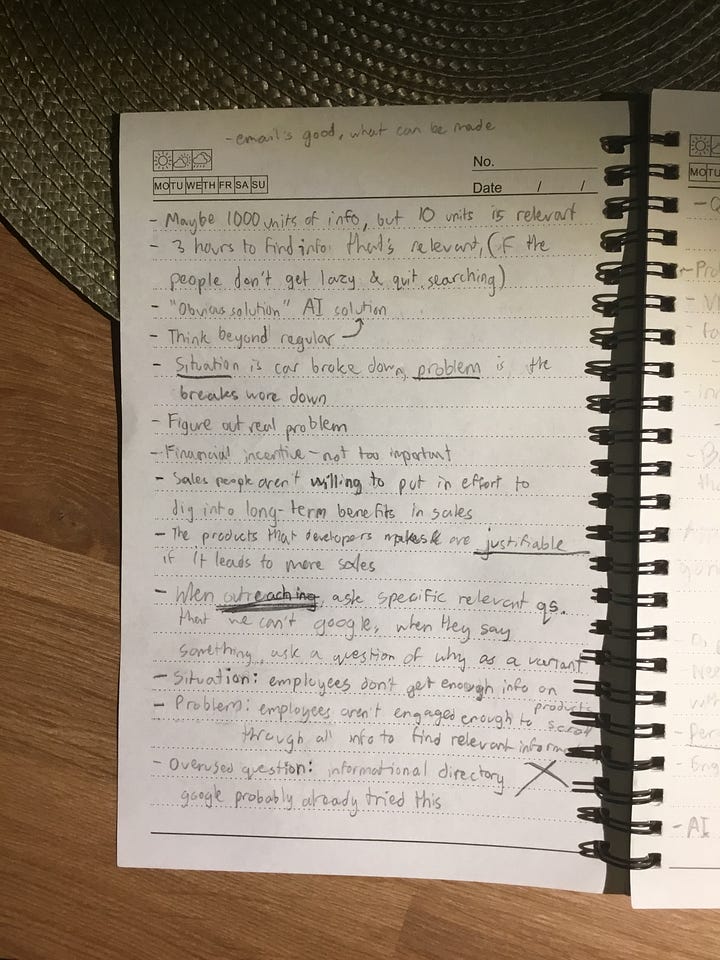 - email's good, what can be made
No.
MO TU WE TH FR SA SU
Date / /
- Maybe 1000 units of info, but 10 units is relevant
- 3 hours to find info that's relevant, (if the
people don't get lazy & quit searching)
- "Obvious solution" AI solution
- Think beyond regular
- Situation is car broke down, problem is the
breaks wore down
- Figure out real problem
- Financial incentive - not too important
- Sales people aren't willing to put in effort to
dig into long-term benefits in sales
- The products that developers make are justifiable
if it leads to more sales
- When outreaching, ask specific relevant qs.
that we can't google, when they say
something, ask a question of why as a variant
- Situation: employees don't get enough info on
products
- Problem: employees aren't engaged enough to scroll
through all info to find relevant
- Overused question: informational directory
google probably already tried this
MO TU
- AI